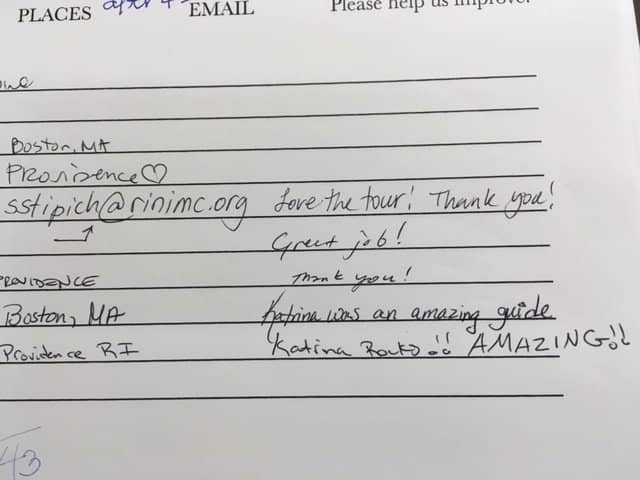 PLACES after 4 EMAIL Please help us improve.
Boston, MA
Providence♡
sstipich@rinimc.org Love the tour! Thank you!
Great job!
PROVIDENCE Thank you!
Boston, MA Katrina was an amazing guide
Providence RI Katina Rocks!! AMAZING!!
43